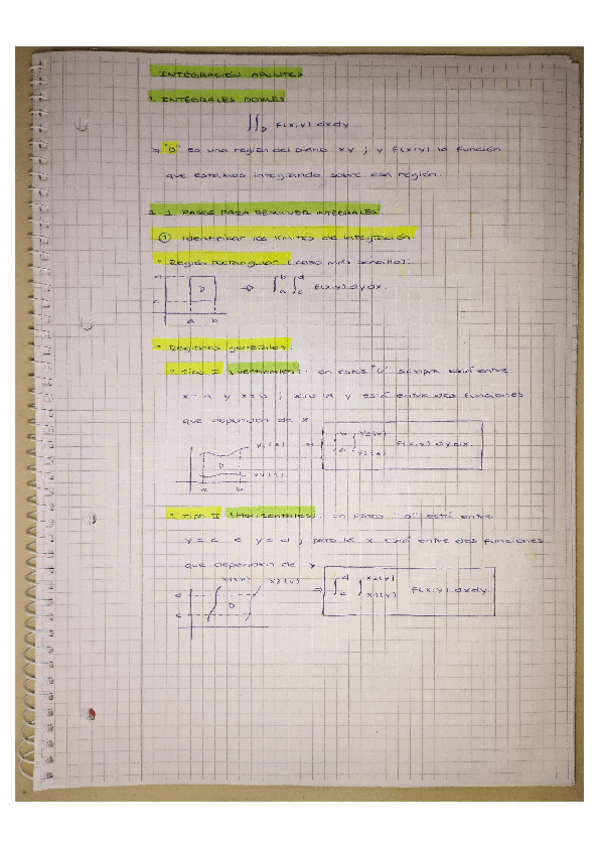 INTEGRACIÓN APUNTES
1. INTEGRALES DOBLES
∬_D f(x,y) dxdy
"D" es una región del plano xy ; y f(x,y) la función
que estamos integrando sobre esa región.
1.1 PASOS PARA RESOLVER INTEGRALES
① Identificar los límites de integración
Región rectangular (caso más sencillo):
D
a b
∫_a^b ∫_c^d f(x,y) dy dx.
Regiones generales
Tipo I (verticales): en estas "D" siempre está entre
x = a y x = b ; y está entre dos funciones
que dependen de x
D
a b
f(x,y) dy dx.
Tipo II (Horizontales): "D" está entre
y = c e y = d ; pero la x está entre dos funciones
que dependen de y
x1(y) x2(y)
d
c
D
⇒ ∫_c^d ∫_{x1(y)}^{x2(y)} f(x,y) dxdy